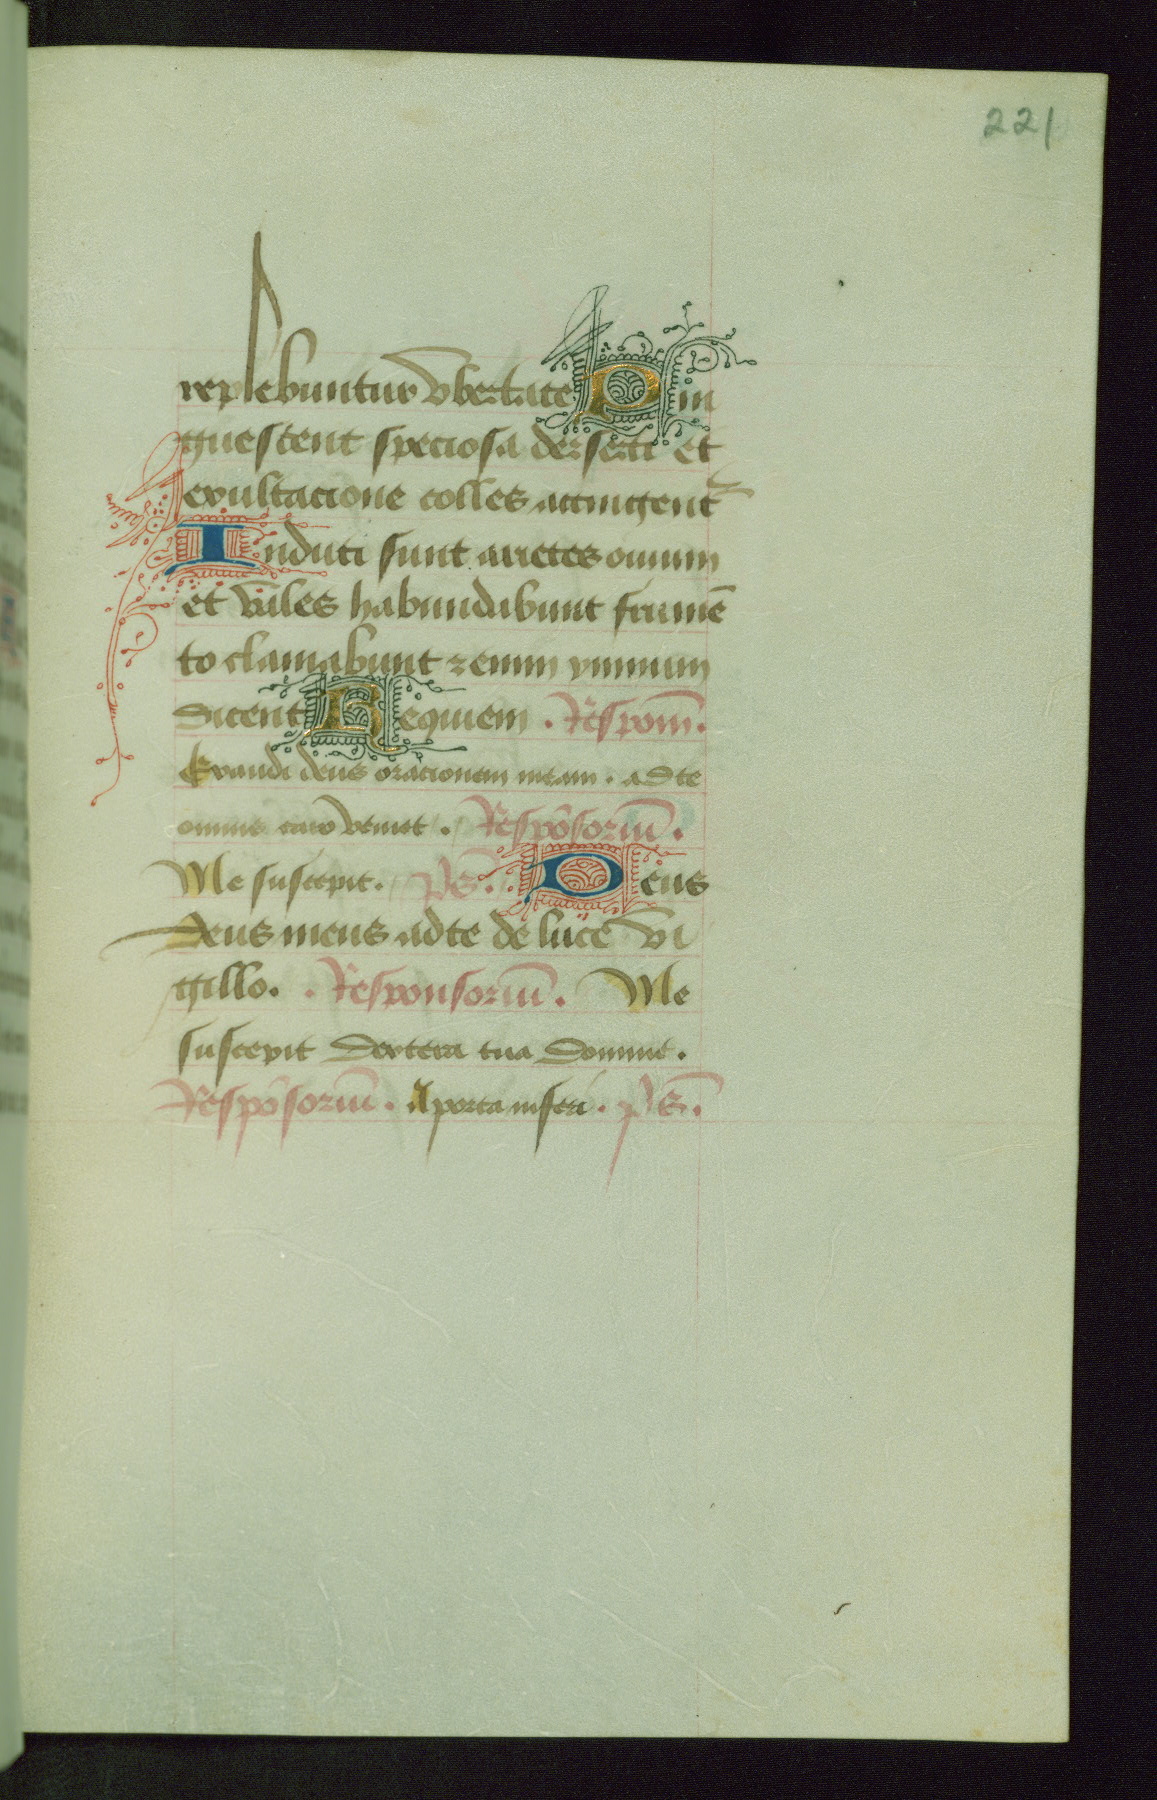 221
replebuntur vbertate Pin
guescent speciosa derserti et
exultacione colles accingent~
Induti sunt arietes ouium
et valles habundabunt frumē
to clamabunt etenim ymnum
dicent Requiem . Respom̄.
Exaudi deus oracionem meam . ad te
omnis caro veniet . Respōsoriū .
Me suscepit . ps̄ . Deus
deus meus ad te de luce vi
gillo . . Responsoriū . Me
suscepit dextera tua domine .
Respōsoriū . A porta inferi . ps̄ .